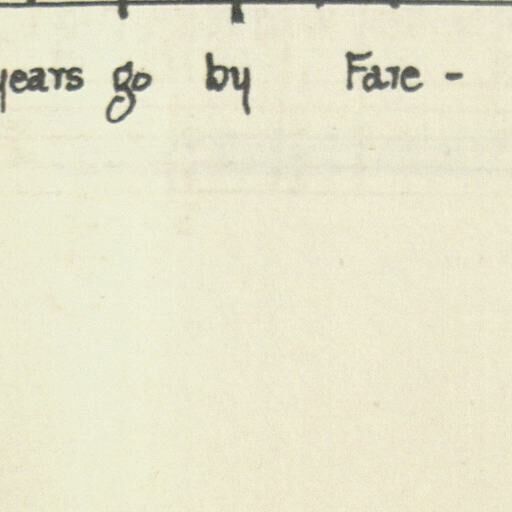 years go by Fare -